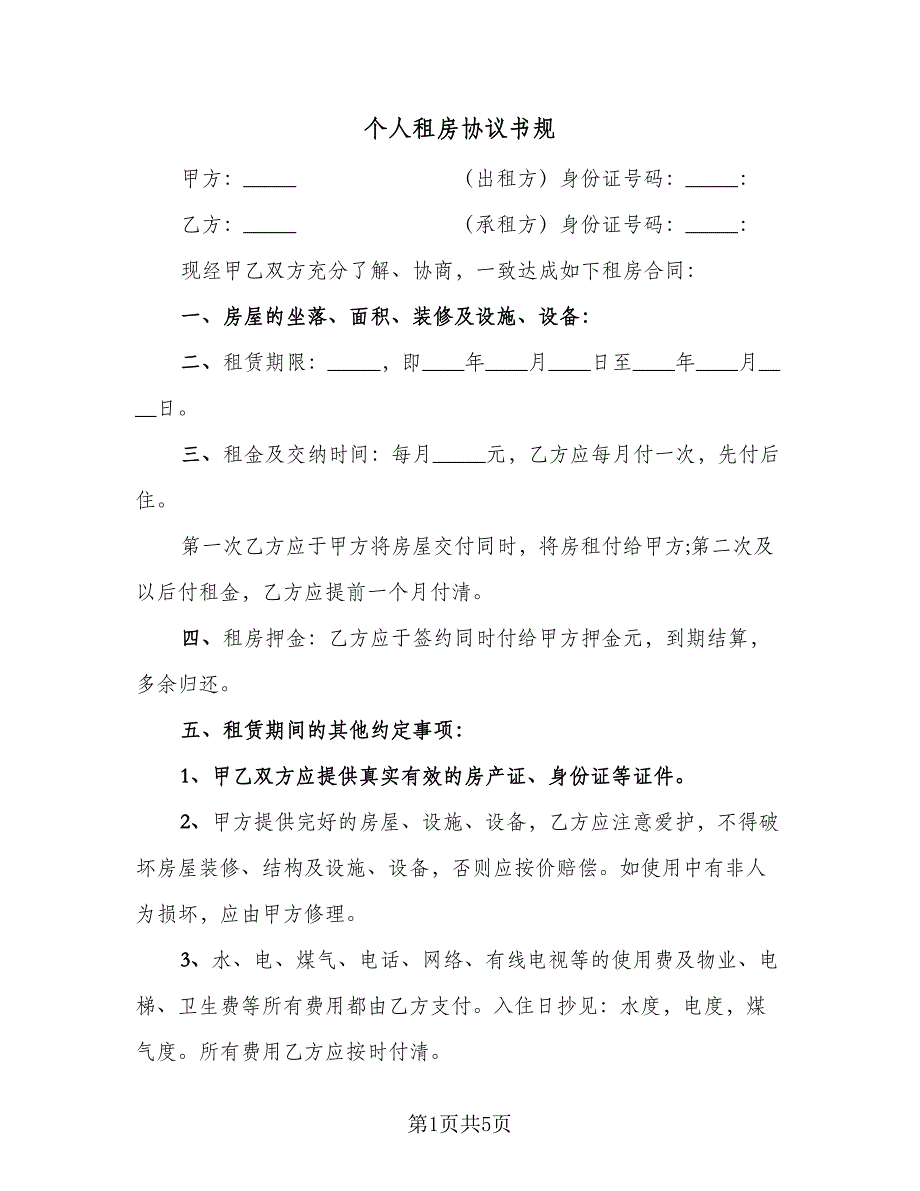 个人租房协议书规
甲方：_____ （出租方）身份证号码：_____：
乙方：_____ （承租方）身份证号码：_____：
现经甲乙双方充分了解、协商，一致达成如下租房合同：
一、房屋的坐落、面积、装修及设施、设备：
二、租赁期限：_____，即____年____月____日至____年____月__
__日。
三、租金及交纳时间：每月_____元，乙方应每月付一次，先付后
住。
第一次乙方应于甲方将房屋交付同时，将房租付给甲方;第二次及
以后付租金，乙方应提前一个月付清。
四、租房押金：乙方应于签约同时付给甲方押金元，到期结算，
多余归还。
五、租赁期间的其他约定事项：
1、甲乙双方应提供真实有效的房产证、身份证等证件。
2、甲方提供完好的房屋、设施、设备，乙方应注意爱护，不得破
坏房屋装修、结构及设施、设备，否则应按价赔偿。如使用中有非人
为损坏，应由甲方修理。
3、水、电、煤气、电话、网络、有线电视等的使用费及物业、电
梯、卫生费等所有费用都由乙方支付。入住日抄见：水度，电度，煤
气度。所有费用乙方应按时付清。
第1页共5页